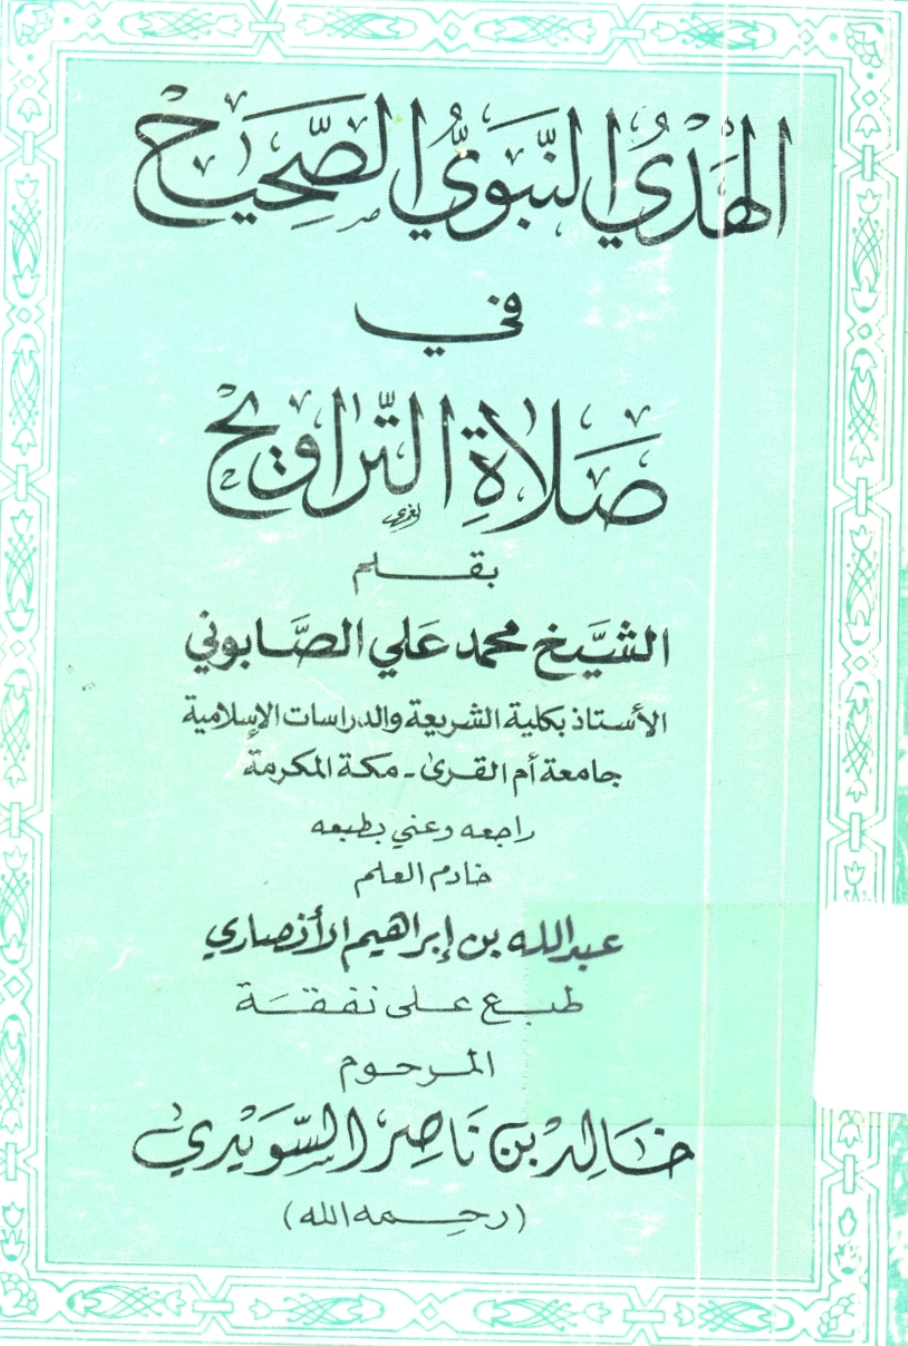 الهَدْيُ النَّبَوِيُّ الصَّحِيَح
في
صَلَاةِ التَّرَاوِيحْ
بقـلم
الشَّيخ محمد عَلي الصَّابوني
الأستاذ بكلية الشريعة والدراسات الإسلامية
جامعة أم القرى - مكة المكرمة
راجعه وعني بطبعه
خادم العلم
عبدالله بن إبراهيم الأنصاري
طبع على نفقَة
المرحوم
خَالِد بن نَاصِر السّوَيْدي
(رحمه الله)